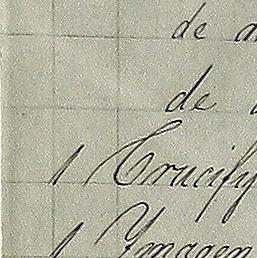 de
de
1 Crucify
1 Ymagen